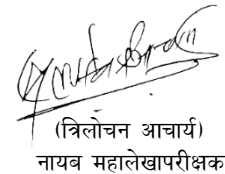 (त्रिलोचन आचार्य)
नायब महालेखापरीक्षक